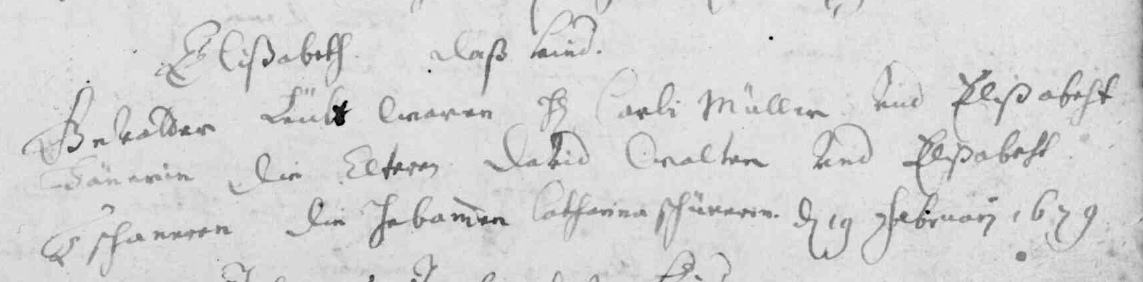 Elißabeth daß kind.
Gevatter Leüt waren H Carli Müller und Elißabeht
die Elteren David Walter und Elißabeht
Tschanneren die Hebamen Catharina schürerin. d 19 Februarij 1679